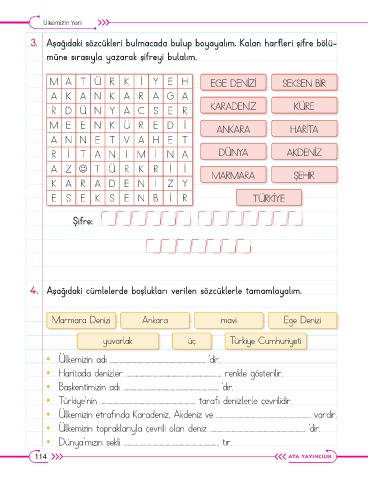 Ülkemizin Yeri
3. Aşağıdaki sözcükleri bulmacada bulup boyayalım. Kalan harfleri şifre bölü-
müne sırasıyla yazarak şifreyi bulalım.
M A T Ü R K İ Y E H
A K A N K A R A G A
R D Ü N Y A C Ş E R
M E E N K Ü R E D İ
A N N E T V A H E T
R İ T A N I M I N A
A Z ☺ T Ü R K R İ İ
K A R A D E N İ Z Y
E S E K S E N B İ R
EGE DENİZİ SEKSEN BİR
KARADENİZ KÜRE
ANKARA HARİTA
DÜNYA AKDENİZ
MARMARA ŞEHİR
TÜRKİYE
Şifre:
4. Aşağıdaki cümlelerde boşlukları verilen sözcüklerle tamamlayalım.
Marmara Denizi Ankara mavi Ege Denizi
yuvarlak üç Türkiye Cumhuriyeti
• Ülkemizin adı ........ 'dir.
• Haritada denizler ........ renkle gösterilir.
• Başkentimizin adı ........ 'dır.
• Türkiye'nin ........ tarafı denizlerle çevrilidir.
• Ülkemizin etrafında Karadeniz, Akdeniz ve ........ vardır.
• Ülkemizin topraklarıyla çevrili olan deniz ........ 'dir.
• Dünya'mızın şekli ........ tır.
114
ATA YAYINCILIK